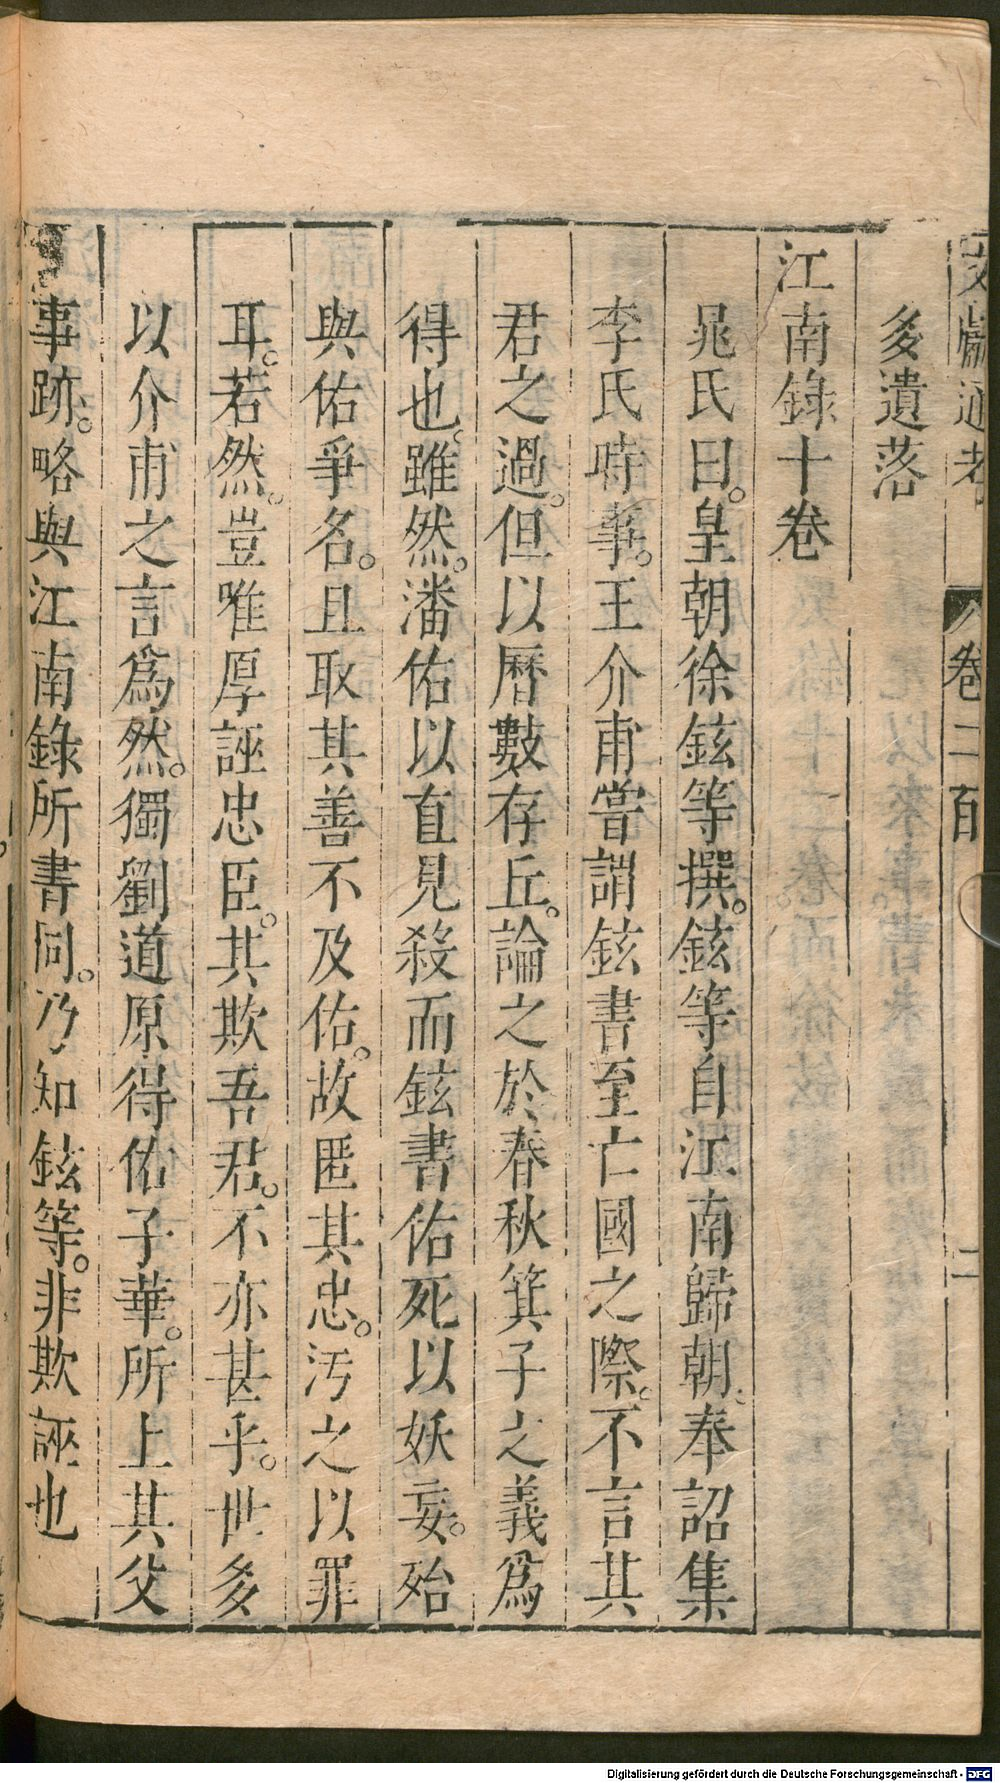 文獻通考　卷二百　二
多遺落
江南錄十卷
晁氏曰。皇朝徐鉉等撰。鉉等自江南歸朝。奉詔集
李氏時事。王介甫嘗謂鉉書至亡國之際。不言其
君之過。但以曆數存丘。論之於春秋箕子之義爲
得也。雖然。潘佑以直見殺而鉉書佑死以妖妄。殆
與佑爭名。且取其善不及佑。故匿其忠。汚之以罪
耳。若然。豈唯厚誣忠臣。其欺吾君。不亦甚乎。世多
以介甫之言爲然。獨劉道原得佑子華。所上其父
事跡。略與江南錄所書同。乃知鉉等。非欺誣也
Digitalisierung gefördert durch die Deutsche Forschungsgemeinschaft - DFG